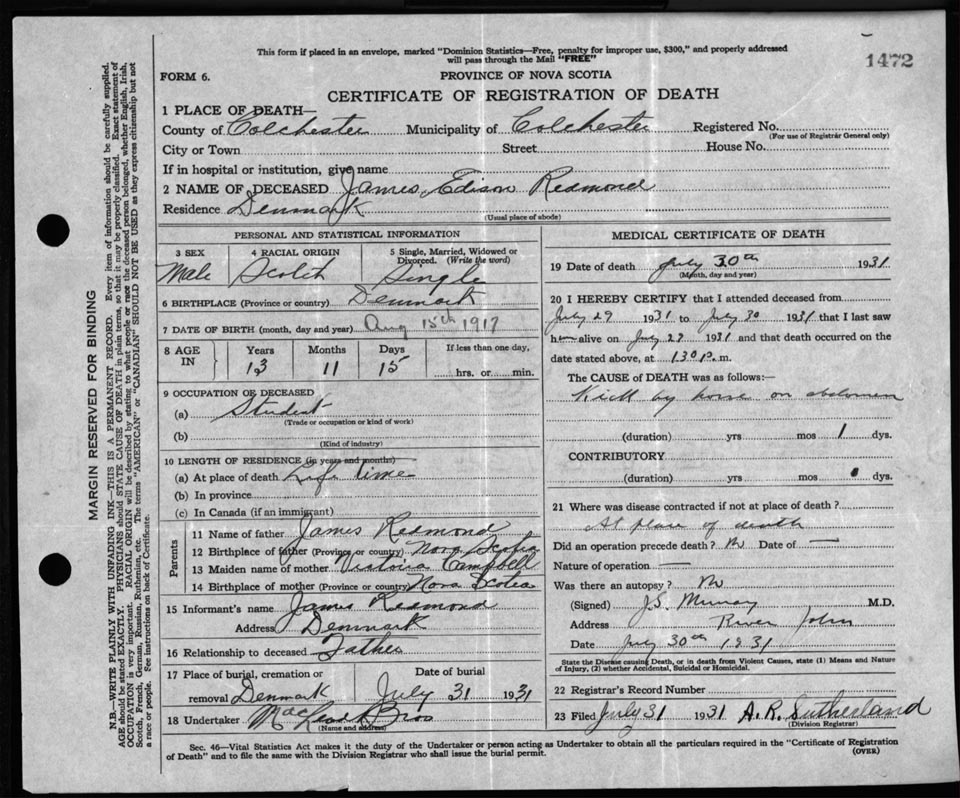 This form if placed in an envelope, marked "Dominion Statistics—Free, penalty for improper use, $300," and properly addressed
will pass through the Mail "FREE"
1472
FORM 6.
PROVINCE OF NOVA SCOTIA
CERTIFICATE OF REGISTRATION OF DEATH
1 PLACE OF DEATH—
County of Colchester Municipality of Colchester Registered No.
(For use of Registrar General only)
City or Town Street House No.
If in hospital or institution, give name
2 NAME OF DECEASED James Edison Redmond
Residence Denmark
(Usual place of abode)
PERSONAL AND STATISTICAL INFORMATION
3 SEX 4 RACIAL ORIGIN 5 Single, Married, Widowed or Divorced. (Write the word)
Male Scotch Single
6 BIRTHPLACE (Province or country) Denmark
7 DATE OF BIRTH (month, day and year) Aug 15th 1917
8 AGE IN Years Months Days If less than one day,
13 11 15 hrs. or min.
9 OCCUPATION OF DECEASED
(a) Student
(Trade or occupation or kind of work)
(b)
(Kind of industry)
10 LENGTH OF RESIDENCE (in years and months)
(a) At place of death Life time
(b) In province
(c) In Canada (if an immigrant)
Parents
11 Name of father James Redmond
12 Birthplace of father (Province or country) Nova Scotia
13 Maiden name of mother Victoria Campbell
14 Birthplace of mother (Province or country) Nova Scotia
15 Informant's name James Redmond
Address Denmark
16 Relationship to deceased Father
17 Place of burial, cremation or Date of burial
removal Denmark July 31 1931
18 Undertaker MacLeod Bros
(Name and address)
MEDICAL CERTIFICATE OF DEATH
19 Date of death July 30th 1931
(Month, day and year)
20 I HEREBY CERTIFY that I attended deceased from
July 29 1931 to July 30 1931 that I last saw
h alive on July 29 1931 and that death occurred on the
date stated above, at 1 30 P. m.
The CAUSE of DEATH was as follows:—
Kick by horse on abdomen
(duration) yrs mos 1 dys.
CONTRIBUTORY
(duration) yrs mos dys.
21 Where was disease contracted if not at place of death?
At place of death
Did an operation precede death? No Date of —
Nature of operation —
Was there an autopsy? No
(Signed) J.S. Murray M.D.
Address River John
Date July 30th 1931
State the Disease causing Death, or in death from Violent Causes, state (1) Means and Nature
of Injury, (2) whether Accidental, Suicidal or Homicidal.
22 Registrar's Record Number
23 Filed July 31 1931 A.R. Sutherland
(Division Registrar)
Sec. 46—Vital Statistics Act makes it the duty of the Undertaker or person acting as Undertaker to obtain all the particulars required in the "Certificate of Registration
of Death" and to file the same with the Division Registrar who shall issue the burial permit.
(OVER)
MARGIN RESERVED FOR BINDING
N.B.—WRITE PLAINLY WITH UNFADING INK—THIS IS A PERMANENT RECORD. Every item of information should be carefully supplied.
AGE should be stated EXACTLY. PHYSICIANS should STATE CAUSE OF DEATH in plain terms, so that it may be properly classified. Exact statement of
OCCUPATION is very important. RACIAL ORIGIN will be described by stating to what people or race the deceased person belonged, whether English, Irish,
Scotch, French, German, Russian, Ruthenian, etc. The terms "AMERICAN" or "CANADIAN" SHOULD NOT BE USED as they express citizenship but not
a race or people. See instructions on back of Certificate.